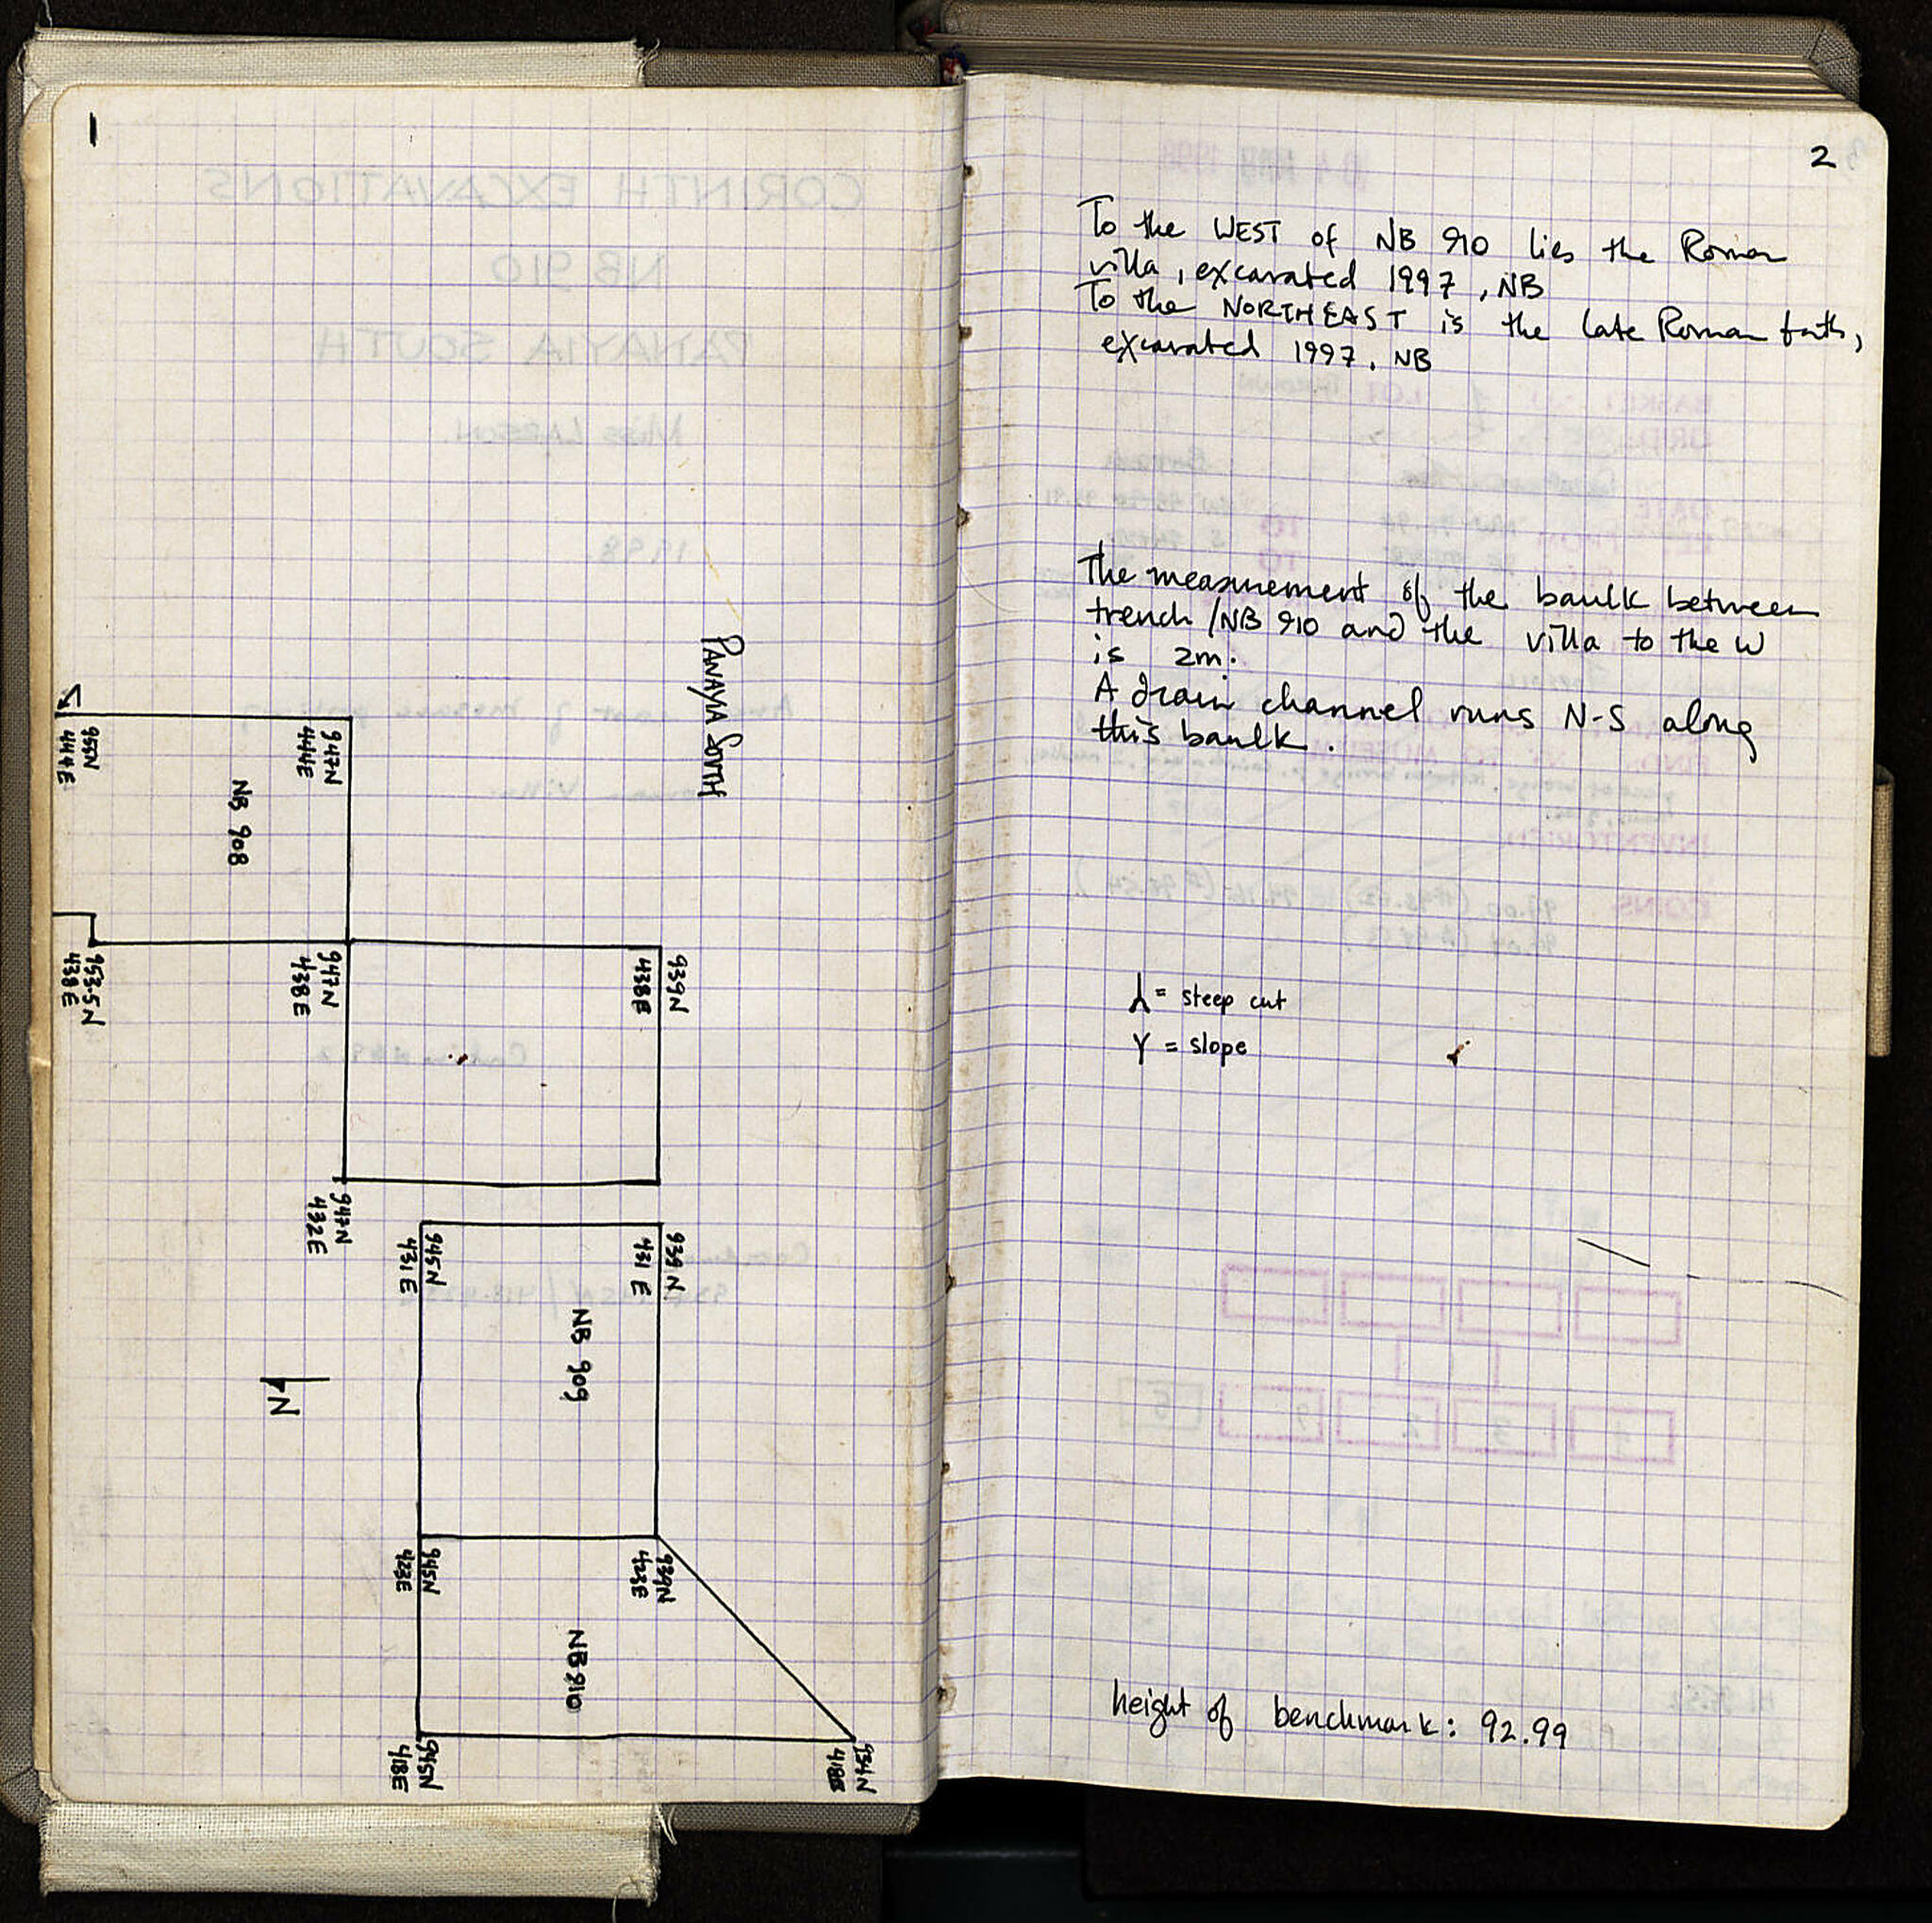 1
PANAYIA SOUTH
955N
444E
947N
444E
NB 908
953.5N
438E
947N
438E
939N
438E
947N
432E
945N
431E
939N
431E
NB 909
N
945N
423E
939N
423E
NB910
945N
418E
934N
418E
2
To the WEST of NB 910 lies the Roman
villa, excavated 1997, NB
To the NORTHEAST is the late Roman bath,
excavated 1997, NB
The measurement of the baulk between
trench/NB 910 and the villa to the W
is 2m.
A drain channel runs N-S along
this baulk.
⅄ = steep cut
Y = slope
height of benchmark: 92.99